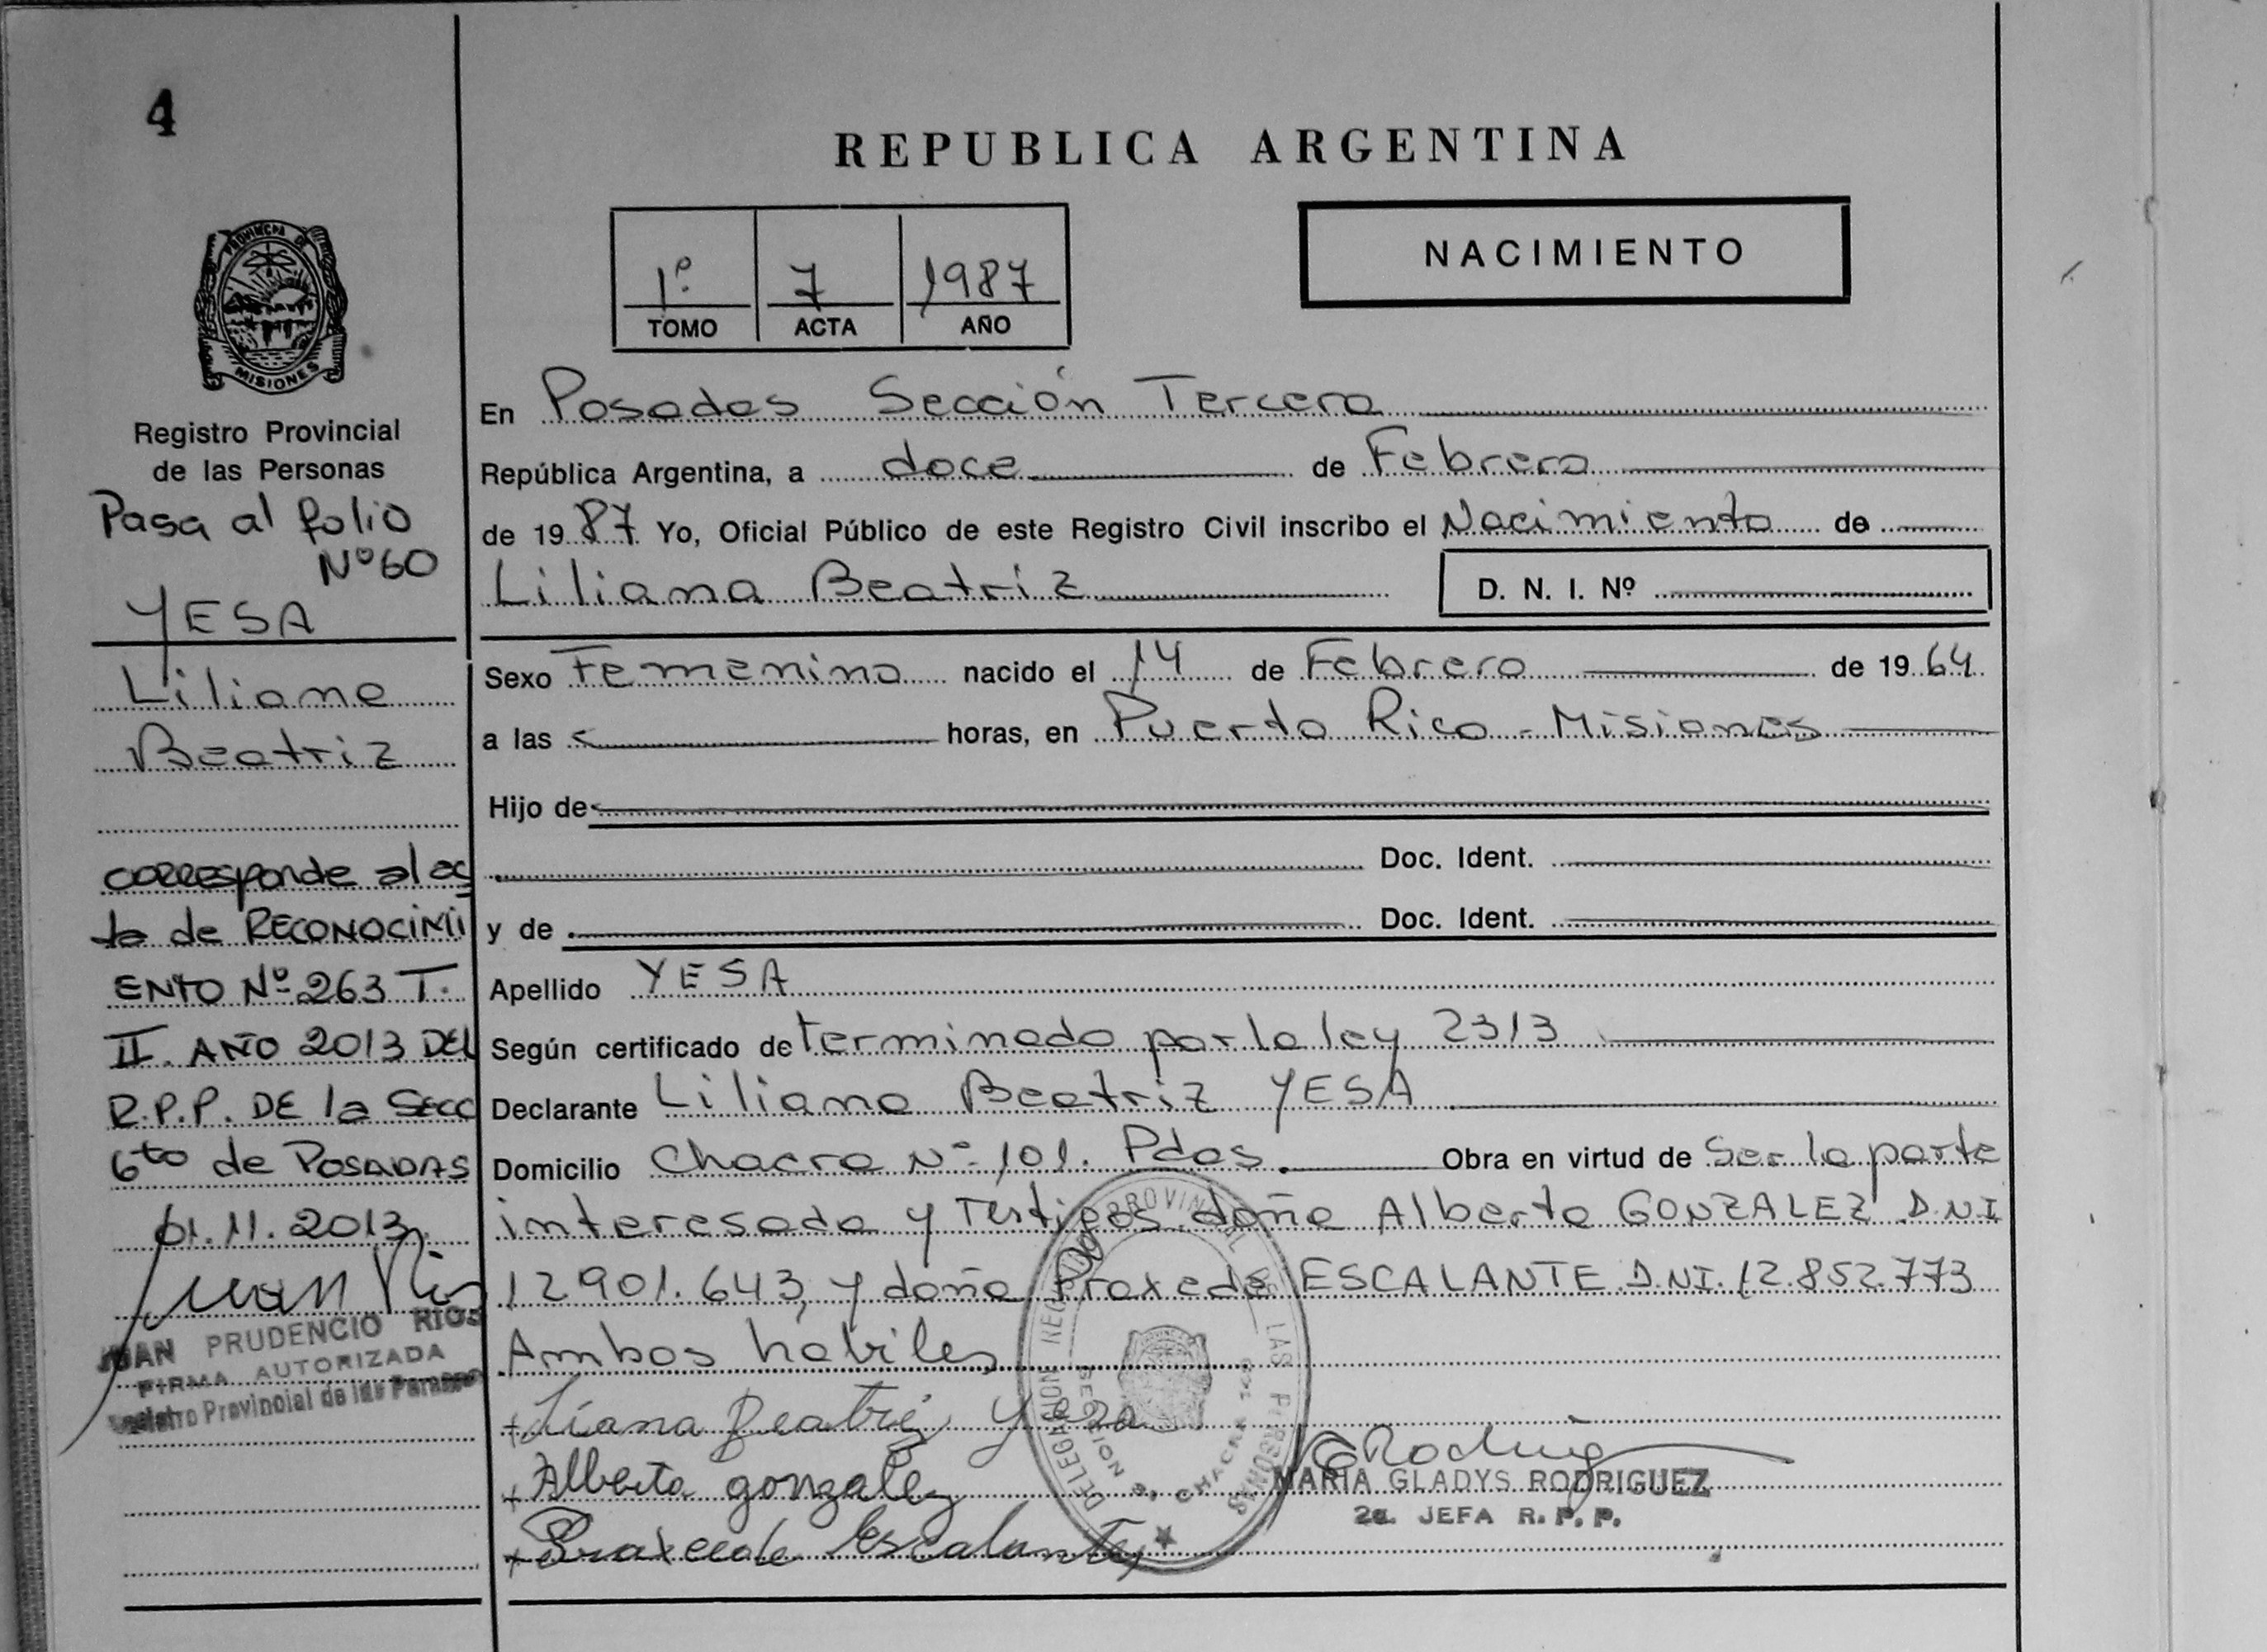 4
REPUBLICA ARGENTINA
1º 7 1987
TOMO ACTA AÑO
NACIMIENTO
PROVINCIA DE
MISIONES
Registro Provincial
de las Personas
Pasa al folio
Nº 60
YESA
Liliana
Beatriz
corresponde al ac
ta de RECONOCIMI
ENTO Nº 263 T.
II. AÑO 2013 DEL
R.P.P. DE la SECC
6to de POSADAS
01.11.2013.
JUAN PRUDENCIO RIOS
FIRMA AUTORIZADA
Registro Provincial de las Personas
En Posadas Sección Tercera
República Argentina, a doce de Febrero
de 1987 Yo, Oficial Público de este Registro Civil inscribo el Nacimiento de
Liliana Beatriz D. N. I. Nº
Sexo Femenino nacido el 14 de Febrero de 1964
a las horas, en Puerto Rico - Misiones
Hijo de
Doc. Ident.
y de Doc. Ident.
Apellido YESA
Según certificado determinado por la ley 2313
Declarante Liliana Beatriz YESA
Domicilio Chacra Nº 101. Pdas. Obra en virtud de Ser la parte
interesada y Testigos doña Alberta GONZALEZ D.N.I
12901.643, y doña Praxede ESCALANTE D.NI. 12.852.773
Ambos hábiles
Liana Beatriz Yesa
Alberta gonzalez
Praxede Escalante
DELEGACION REGISTRO PROVINCIAL DE LAS PERSONAS
SECCION 3a. CHACRA 103
MARIA GLADYS RODRIGUEZ
2a. JEFA R. P. P.